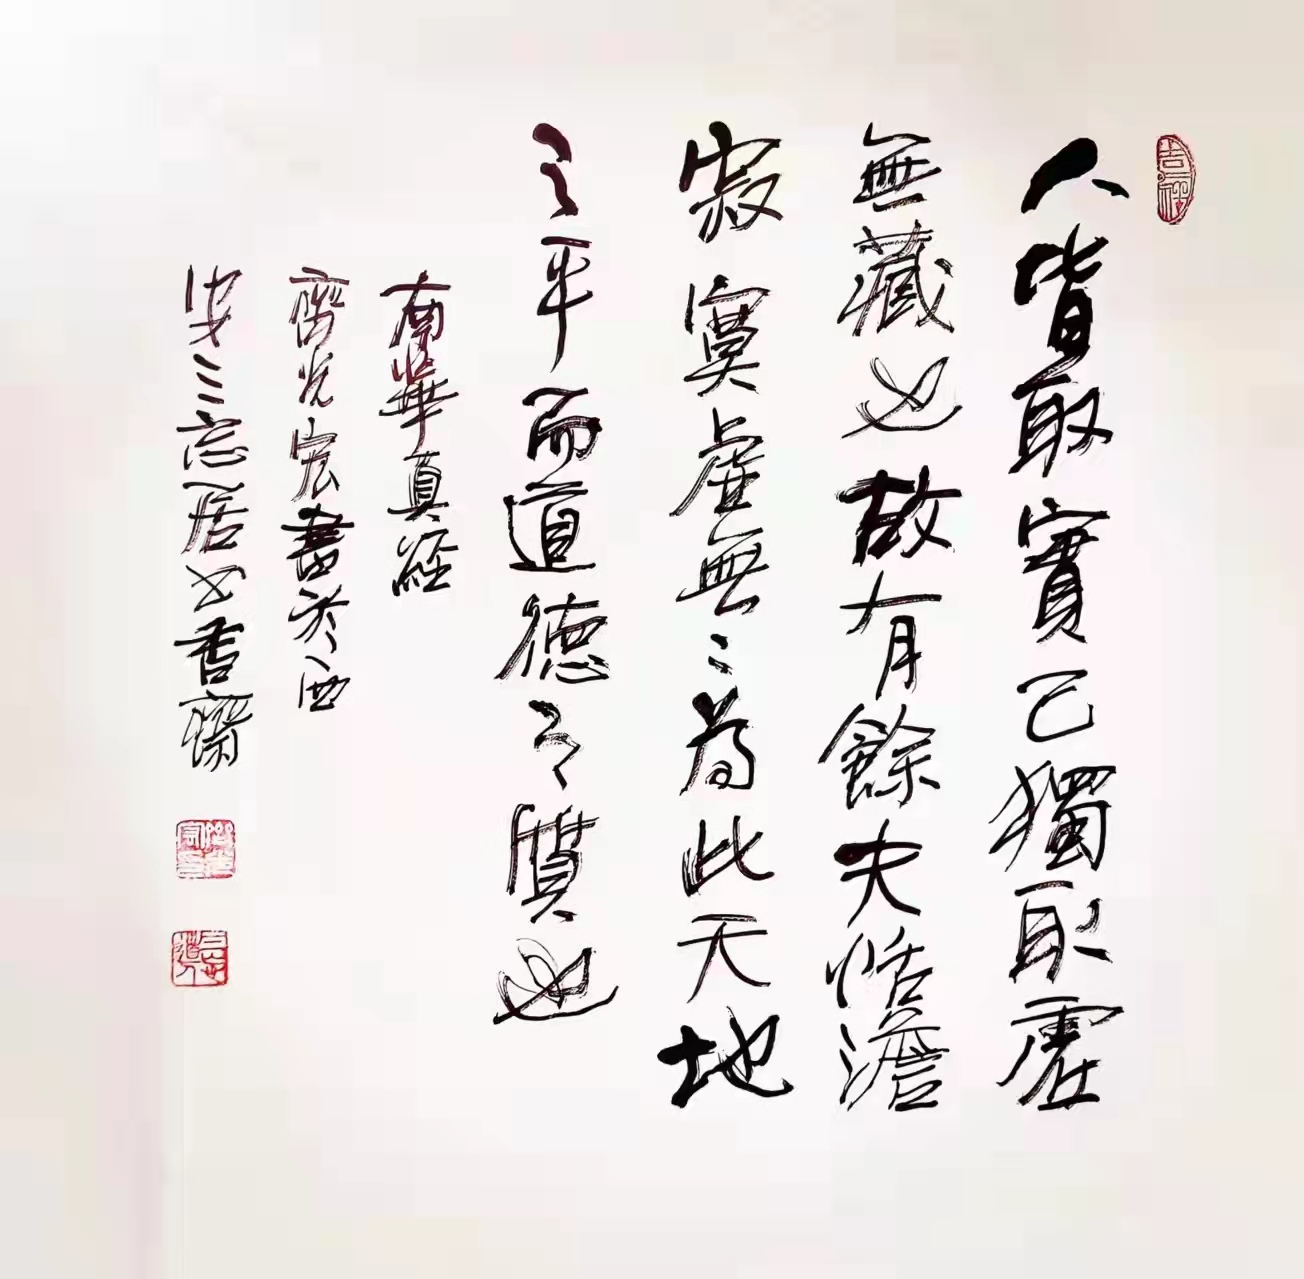 吉祥
人皆取實己獨取虛
無藏也故有餘夫恬澹
寂寞虛無〻為此天地
之平而道德之質也
南華真經
齊光宏書於西
安三忘居也香齋